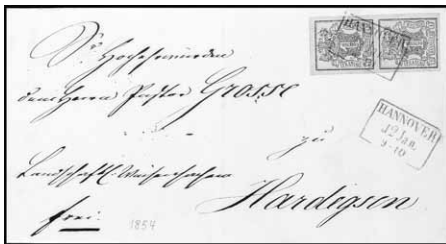 HANNOVER
Sr. Hochehrwürden
dem Herrn Pastor Grosse
HANNOVER
12 Jan.
9-10
zu
Hardigsen
frei.
1854